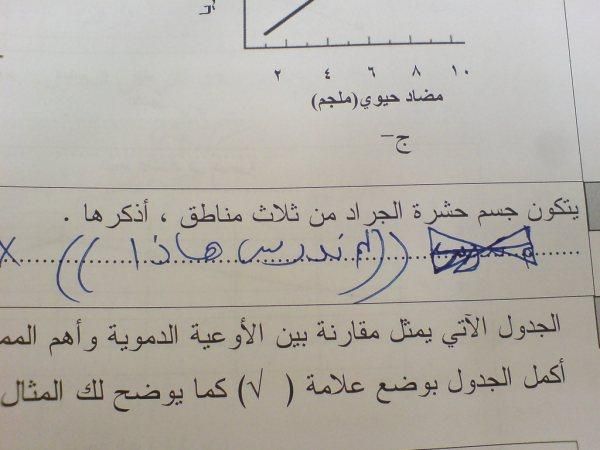 ٢ ٤ ٦ ٨ ١٠
مضاد حيوي(ملجم)
ج-
يتكون جسم حشرة الجراد من ثلاث مناطق ، أذكرها .
((لم ندرس هاذا)) X
الجدول الآتي يمثل مقارنة بين الأوعية الدموية وأهم
أكمل الجدول بوضع علامة ( √) كما يوضح لك المثال